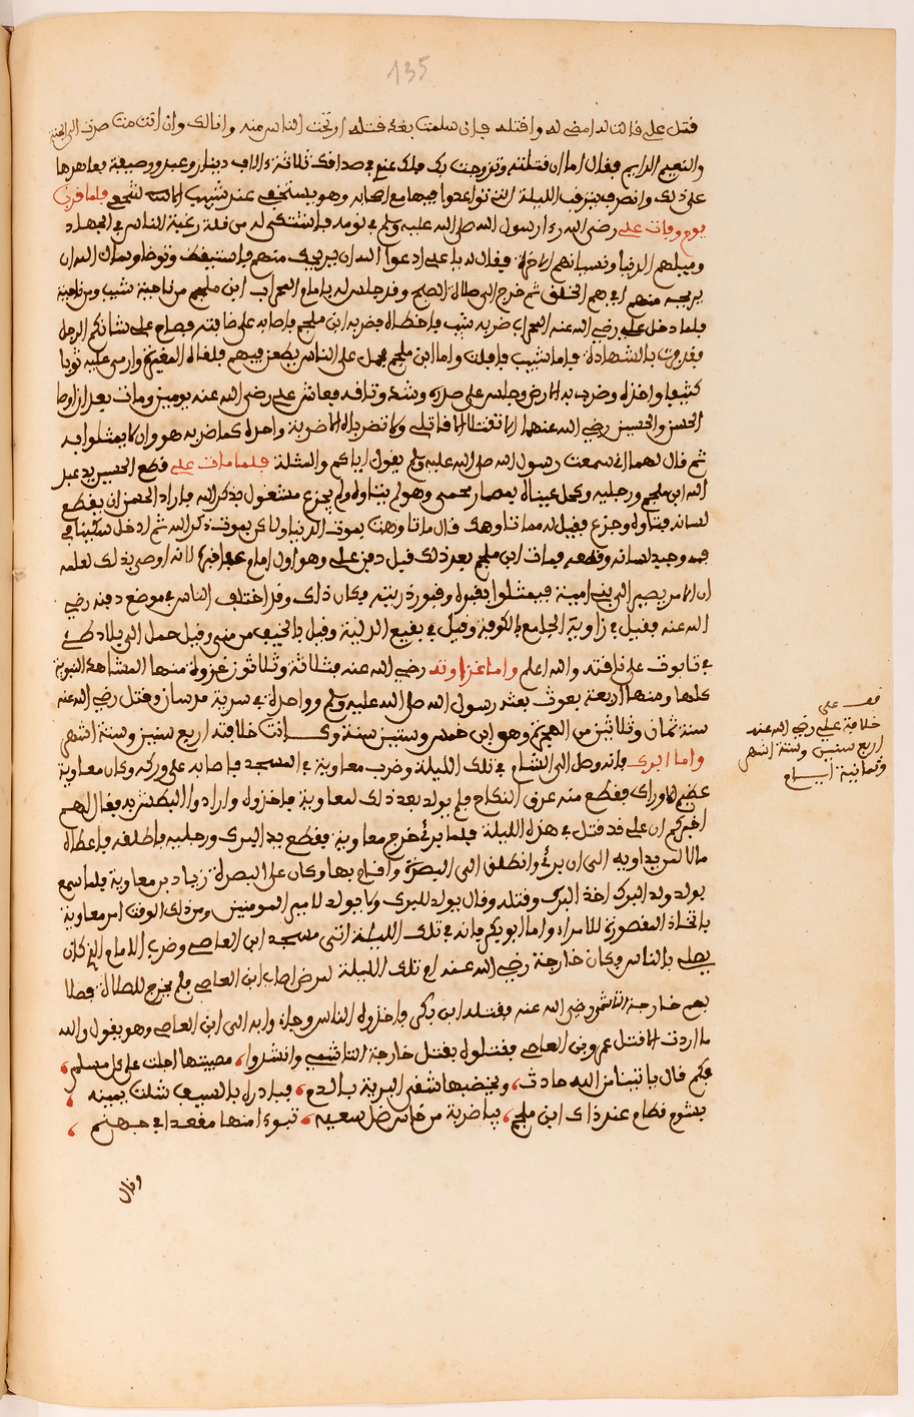 135
قتل علي قالت له امض له واقتله فان سلمت بعد قتله ارتحت الناس منه وانا لك وان انت مت صرت الى الجنة
والنعيم الدايم فقال اما ان قتلته وتزوجت بك فلك عندي في صداقك ثلاثة ءالاف دينار وعبد ووصيفة فعاهدها
على ذلك وانصرف يترقب الليلة التي تواعدوا فيها مع اصحابه وهو يستخفي عند شبيب الاشجعي فلما قرب
يوم وفات علي رضي الله رءا رسول الله صلى الله عليه وسلم في نومه فاشتكى له من قلة رغبة الناس في الجهاد
وميلهم الدنيا ونسيانهم الاخرة فقال له يا علي ادعوا الله ان يريحك منهم فاستيقظ وتوضا وسال الله ان
يريحه منهم اي هم الخلق ثم خرج الى صلاة الصبح وقد جلس له يا مام المحراب ابن ملجم من ناحية شبيب ومن ناحية
فلما دخل علي رضي الله عنه المحراب ضربه شبيب فاخطاه فضربه ابن ملجم فاصابه على صافته فصاح علي شانكم الرجل
فقد فزت بالشهادة فاما شبيب فافلت واما ابن ملجم فحمل على الناس يطعن فيهم فلقاه المغيرة وارمى عليه ثوبا
كثيفا واخذه وضرب به الارض وجلس على صدره وشد وثاقه فعاش علي رضي الله عنه يومين ومات بعد ان اوصا
الحسن والحسين رضي الله عنهما الا تقتلا الا قاتلي ولا تضرباه الا ضربة واحدة كما ضربه هو وان لا يمثلوا به
ثم قال لهما اني سمعت رسول الله صلى الله عليه وسلم يقول اياكم والمثلة فلما مات علي قطع الحسين يد عبد
الله ابن ملجم ورجليه وكحل عيناه بمسمار محمى وهو لم يتاوه ولم يجزع مشغول بذكر الله فاراد الحسن ان يقطع
لسانه فتاوه وجزع فقيل له مما تاوهك قال ما تاوهت بموت الدنيا ولاكن بموت ذكر الله ثم ادخل سكينا في
فمه وجبد لسانه وقطعه فمات ابن ملجم بعد ذلك قيل دفن علي وهو اول امام خفي قبره لانه اوصى بذلك لعلمه
ان الامر يصير الى بني امية فيمثلوا بقبره وقبور ذريته فكان ذلك وقد اختلف الناس في موضع دفنه رضي
الله عنه فقيل في زاوية الجامع بالكوفة وقيل في بقيع المدينة وقيل بالخيف من منى وقيل حمل الى بلاد طيء
في تابوت على ناقته والله اعلم واما غزاوته رضي الله عنه فثلاثة وثلاثون غزوة منها المشاهد النبوية
كلها ومنها اربعة بعوث بعثه رسول الله صلى الله عليه وسلم وواحدة في سرية وقتل رضي الله عنه
سنة ثمان وثلاثين من الهجرة وهو ابن خمس وستين سنة وكانت خلافته اربع سنين وستة اشهر
واما البرك فانه وصل الى الشام في تلك الليلة وضرب معاوية في المسجد فاصابه على وركه وكان معاوية
عظيم الاوراك فقطع منه عرق النكاح فلم يولد بعد ذلك لمعاوية فاخذوه وارادوا البطش به فقال لهم
اخبركم ان علي قد قتل في هذه الليلة فلما برئ خرج معاوية فقطع يد البرك ورجليه فاطلقه فاعطاه
مالا لمن يداويه الى ان برئ وانطلق الى البصرة واقام بها وكان على البصرة زياد بن معاوية فلما سمع
بولد ولد البرك اخذ البرك وقتله وقال يولد للبرك ولا يولد لامير المومنين ومن ذلك الوقت امر معاوية
باتخاذ المقصورة للامراء واما ابو بكر فانه في تلك الليلة اتى مسجد ابن العاصي وضرب الامام الذي كان
يصلي بالناس وكان خارجة رضي الله عنه ام تلك الليلة لمرض اصاب ابن العاصي فلم يخرج للصلاة فصلا
بهم خارجة الناس رضي الله عنه فقتله ابن بكر فاخذوه الناس وجاءوا به الى ابن العاصي وهو يقول والله
ما اردت الا قتل عمرو بن العاصي فقتلوه بقتل خارجة وانشدوا مصيبتها اجلت على كل مسلم
فكم قال ياتينا من الله حادث ويخضبها شقي البرية بالدم فبادره بالسيف شلت يمينه
بشوم قطام عند ذاك ابن ملجم فيا ضربة من خاسر ضل سعيه تبوء منها مقعدا في جهنم
وقال
قف على
خلافة علي رضي الله عنه
اربع سنين وستة اشهر
وثمانية ايام